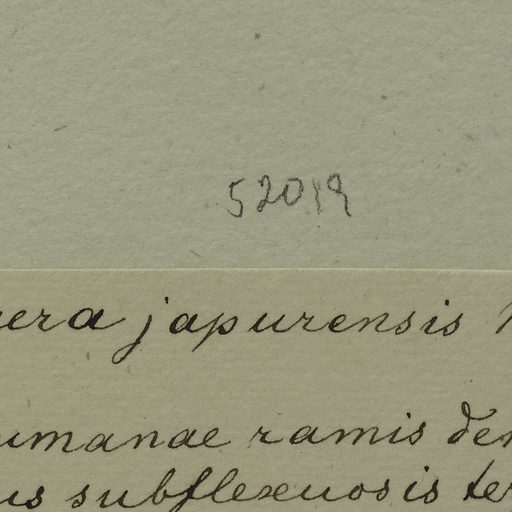 52019
era japurensis
umanae ramis den
us subflexuosis ter